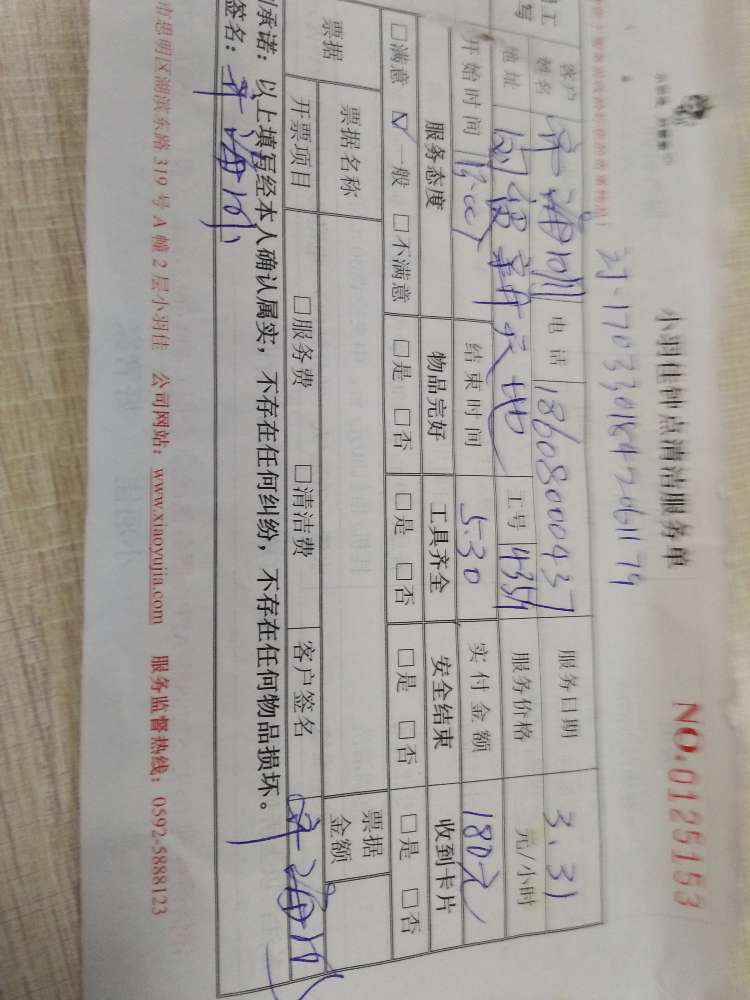 小羽佳钟点清洁服务单
NO.0125153
客户姓名 电话 18608000437 服务日期 3.31
地址 工号 4354 服务价格 元/小时
开始时间 结束时间 5.30 实付金额 180元
服务态度 物品完好 工具齐全 安全结束 收到卡片
□满意 ☑一般 □不满意 □是 □否 □是 □否 □是 □否 □是 □否
票据 票据名称 票据金额
开票项目 □服务费 □清洁费 客户签名
承诺：以上填写经本人确认属实，不存在任何纠纷，不存在任何物品损坏。
签名：
市思明区湖滨东路 319 号 A 幢 2 层小羽佳 公司网站：www.xiaoyujia.com 服务监督热线：0592-5888123